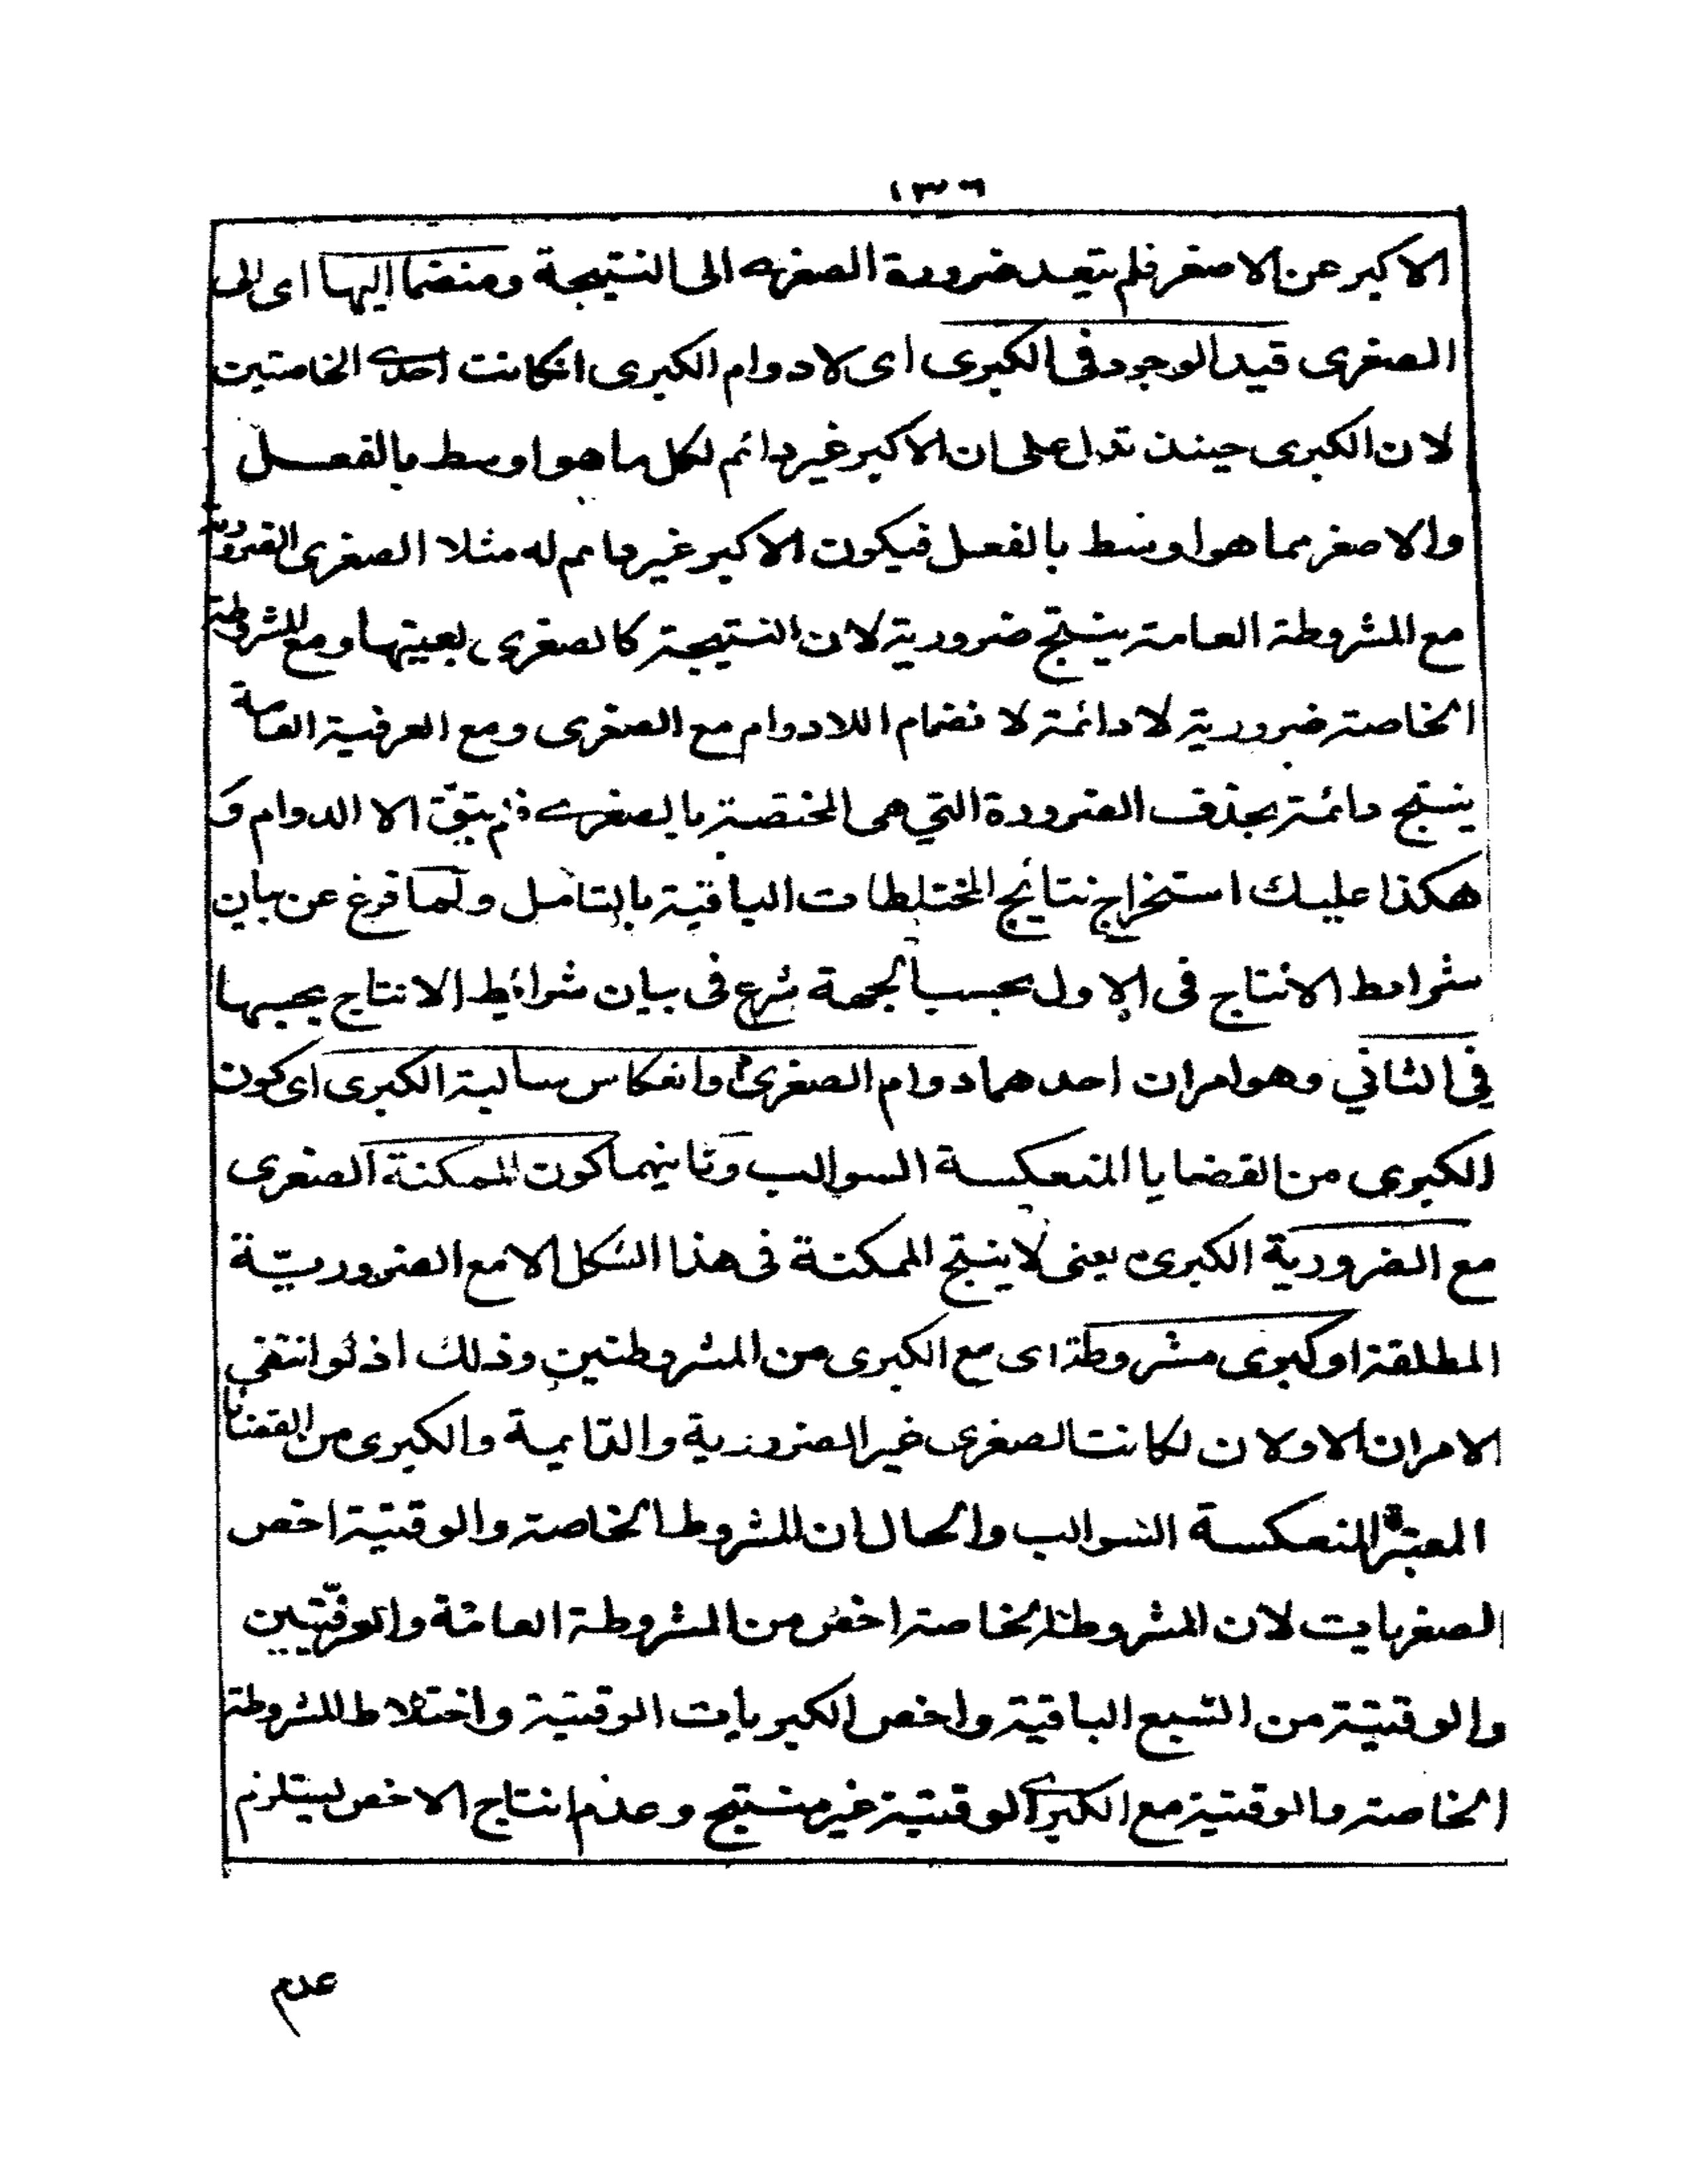 ١٣٦
الاكبر عن الاصغر فلم يتعد ضرورة الصغرى الى النتيجة ومنضما اليها اى الى
الصغرى قيد الوجود فى الكبرى اى لادوام الكبرى انكانت احدى الخاصتين
لان الكبرى حينئذ تدل على ان الاكبر غير دائم لكل ما هو اوسط بالفعل
والاصغر مما هو اوسط بالفعل فيكون الاكبر غير دائم له مثلا الصغرى الضرورية
مع المشروطة العامة ينتج ضرورية لان النتيجة كالصغرى بعينها ومع المشروطة
الخاصة ضرورية لا دائمة لا نضمام اللادوام مع الصغرى ومع العرفية العامة
ينتج دائمة بحذف الضرورة التي هى المختصة بالصغرى فلم يتبق الا الدوام و
هكذا عليك استخراج نتايج المختلطات الباقية بالتامل ولما فرغ عن بيان
شرايط الانتاج فى الاول بحسب الجهة شرع فى بيان شرائط الانتاج بحسبها
في الثاني وهو امران احدهما دوام الصغرى او انعكاس سالبة الكبرى اى كون
الكبرى من القضايا المنعكسة السوالب وثانيهما كون الممكنة الصغرى
مع الضرورية الكبرى يعنى لا ينتج الممكنة فى هذا الشكل الا مع الضروريّة
المطلقة او كبرى مشروطة اى مع الكبرى من المشروطتين وذلك اذ لو انتفى
الامران الاولان لكانت الصغرى غير الضرورية والدّايمة والكبرى من القضايا
المعتبرة المنعكسة السوالب والحال ان المشروط الخاصة والوقتية اخص
الصغريات لان المشروطة الخاصة اخص من المشروطة العامّة والعرفيّتين
والوقتيّة من السّبع الباقية واخص الكبريات الوقتية واختلاط المشروطة
الخاصة والوقتية مع الكبرى الوقتية غير منتج وعدم انتاج الاخص ليستلزم
عدم